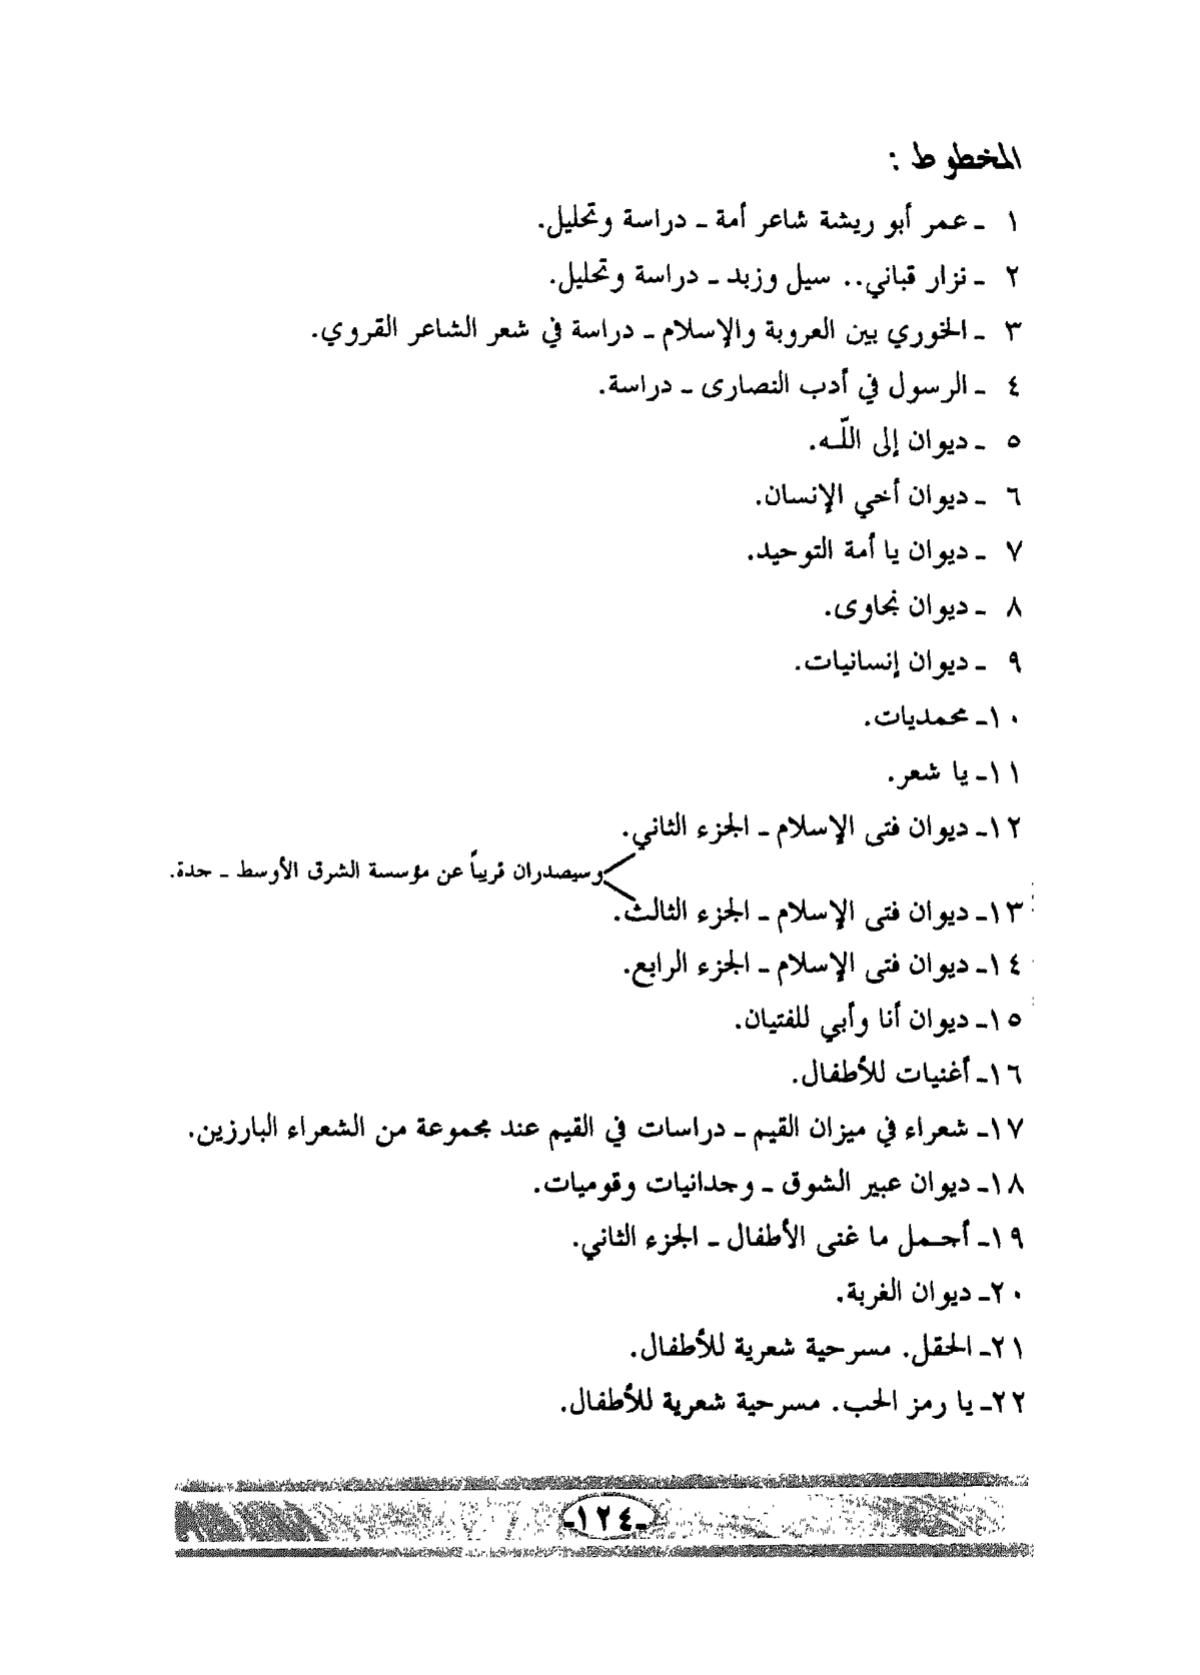 المخطوط :
١ ـ عمر أبو ريشة شاعر أمة ـ دراسة وتحليل.
٢ ـ نزار قباني.. سيل وزبد ـ دراسة وتحليل.
٣ ـ الخوري بين العروبة والإسلام ـ دراسة في شعر الشاعر القروي.
٤ ـ الرسول في أدب النصارى ـ دراسة.
٥ ـ ديوان إلى اللّـه.
٦ ـ ديوان أخي الإنسان.
٧ ـ ديوان يا أمة التوحيد.
٨ ـ ديوان نجاوى.
٩ ـ ديوان إنسانيات.
١٠ـ محمديات.
١١ـ يا شعر.
١٢ـ ديوان فتى الإسلام ـ الجزء الثاني.
وسيصدران قريباً عن مؤسسة الشرق الأوسط ـ حدة.
١٣ـ ديوان فتى الإسلام ـ الجزء الثالث.
١٤ـ ديوان فتى الإسلام ـ الجزء الرابع.
١٥ـ ديوان أنا وأبي للفتيان.
١٦ـ أغنيات للأطفال.
١٧ـ شعراء في ميزان القيم ـ دراسات في القيم عند مجموعة من الشعراء البارزين.
١٨ـ ديوان عبير الشوق ـ وجدانيات وقوميات.
١٩ـ أجـمل ما غنى الأطفال ـ الجزء الثاني.
٢٠ـ ديوان الغربة.
٢١ـ الحقل. مسرحية شعرية للأطفال.
٢٢ـ يا رمز الحب. مسرحية شعرية للأطفال.
ـ١٢٤ـ